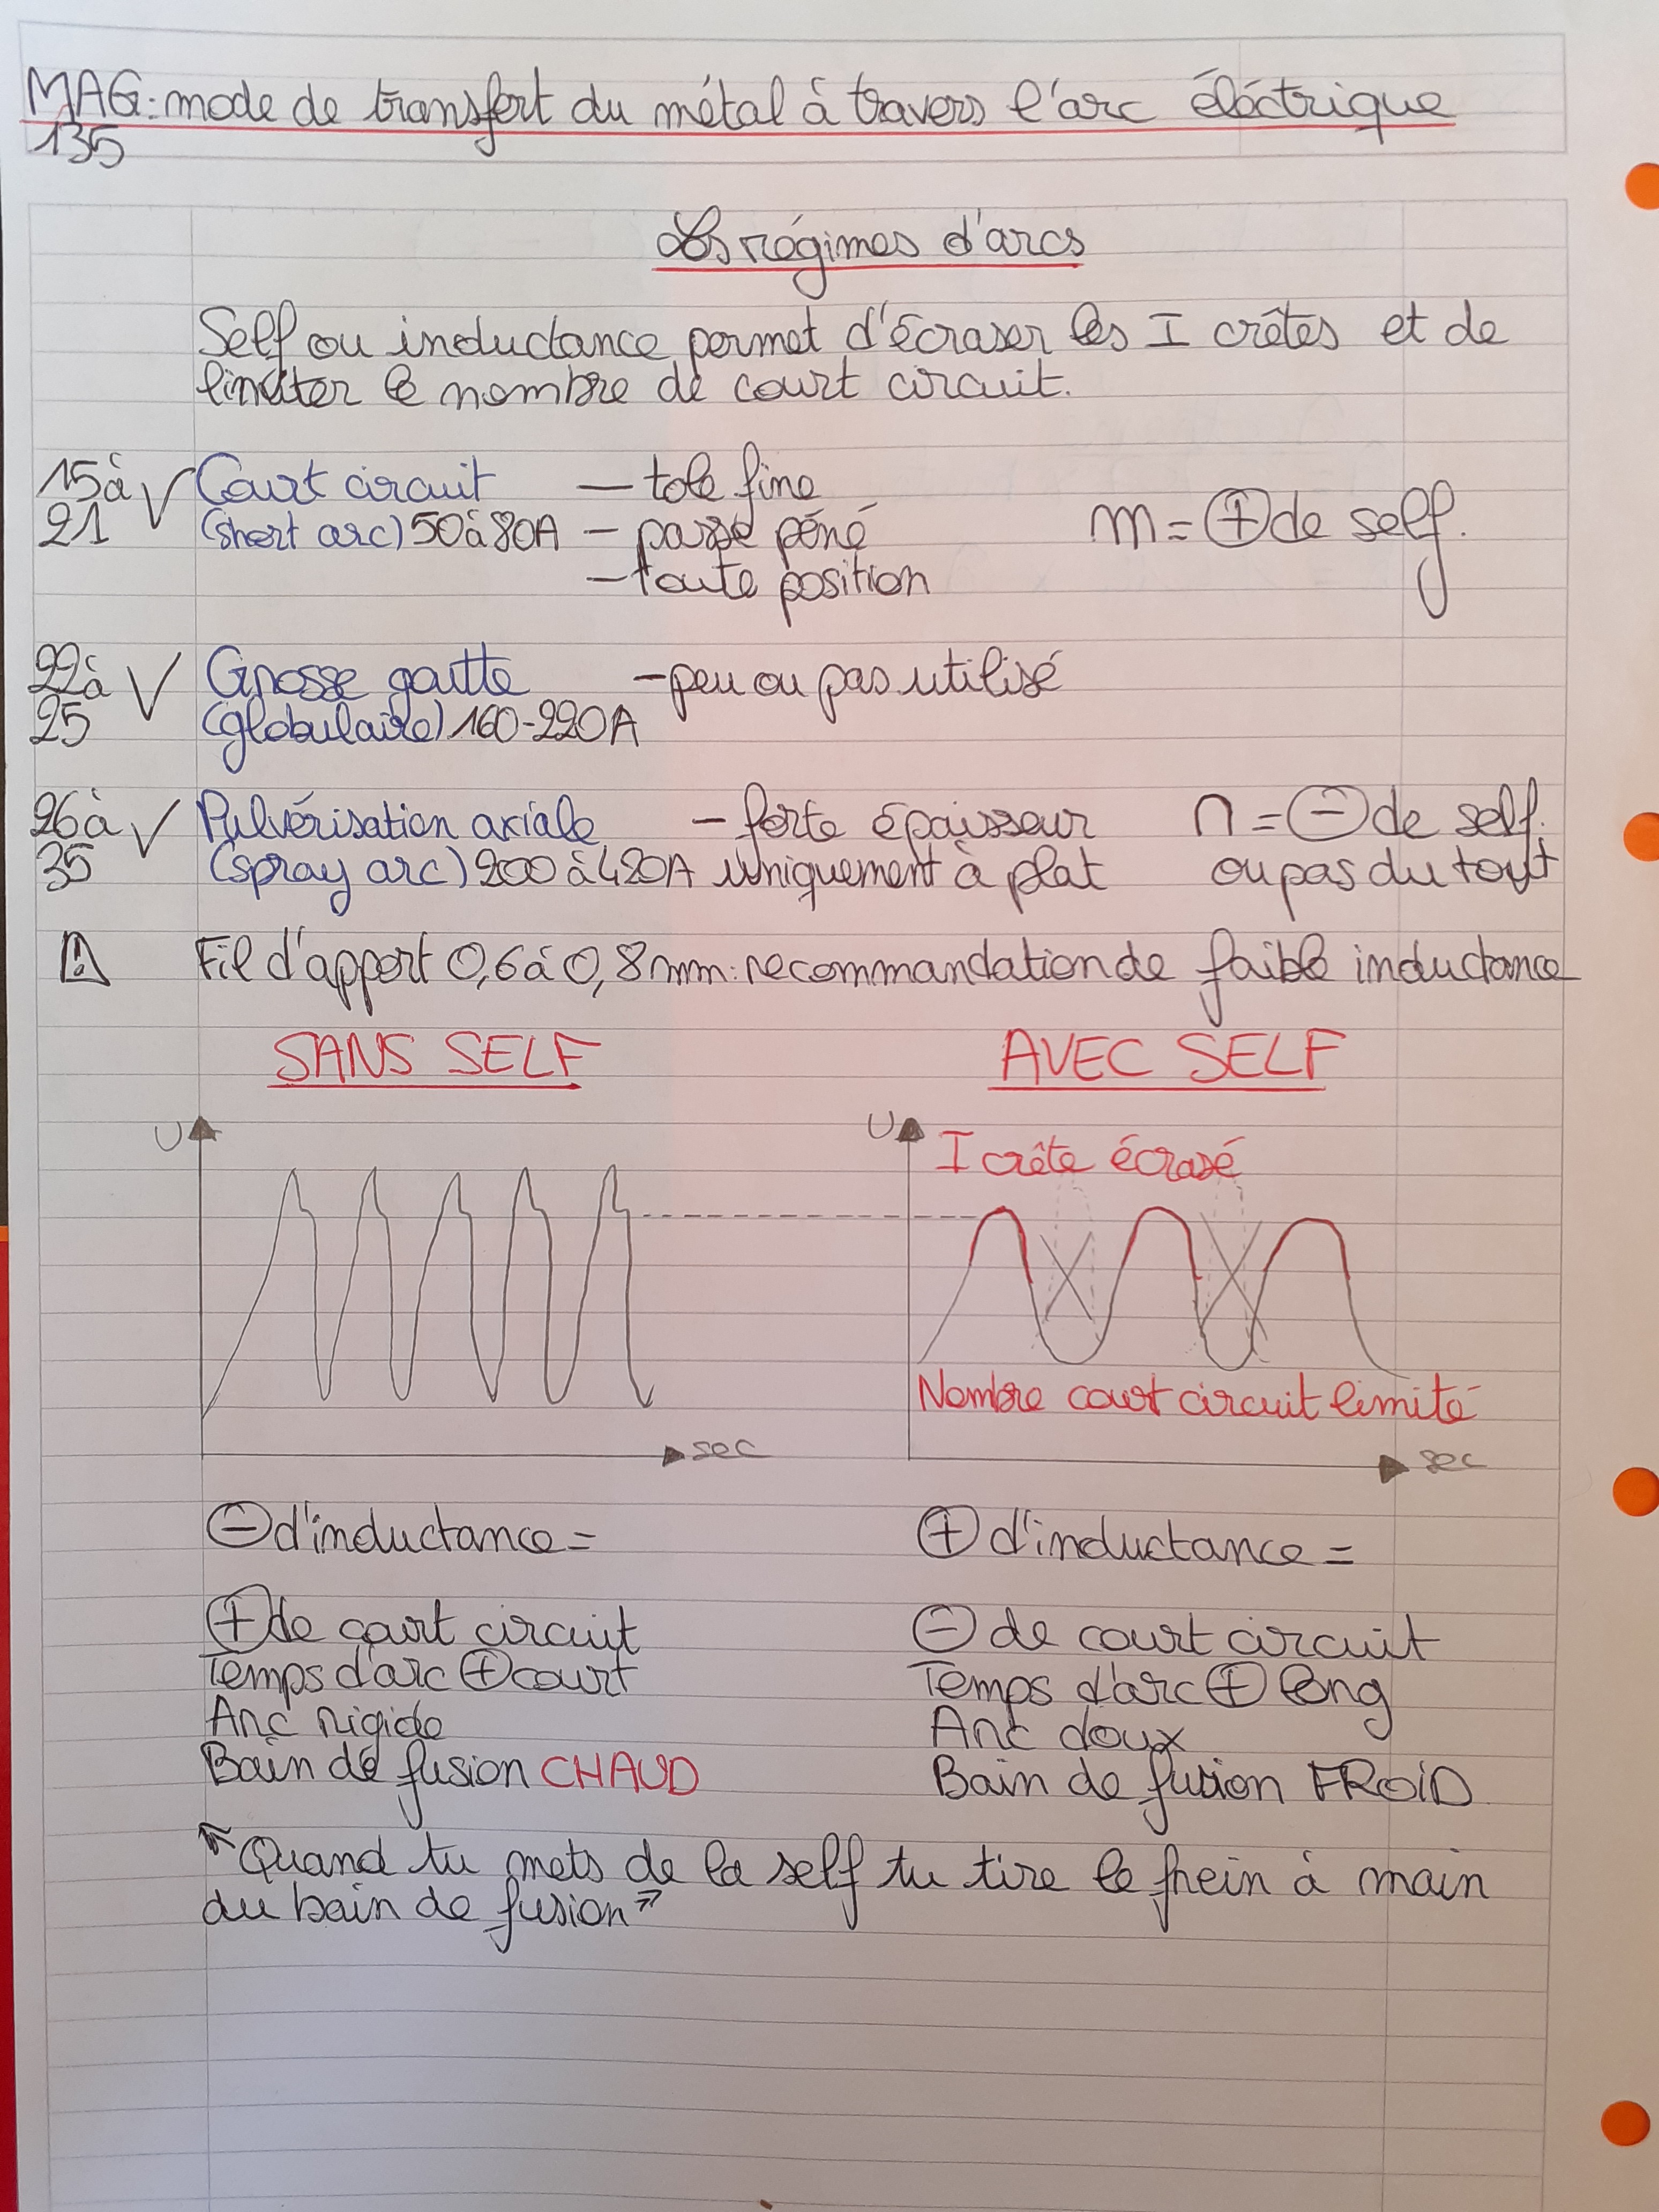 MAG: mode de transfert du métal à travers l'arc éléctrique
135
Les régimes d'arcs
Self ou inductance permet d'écraser les I crêtes et de
limiter le nombre de court circuit.
15 à 21 V Court circuit — tole fine
(short arc) 50 à 80A — passe péné m = ⊕ de self.
— toute position
22 à 25 V Grosse goutte — peu ou pas utilisé
(globulaire) 160-220A
26 à 35 V Pulvérisation axiale — forte épaisseur n = ⊖ de self.
(spray arc) 200 à 480A uniquement à plat ou pas du tout
⚠ Fil d'apport 0,6 à 0,8 mm: recommandation de faible inductance
SANS SELF AVEC SELF
U U I crête écrasé
Nombre court circuit limité
sec sec
⊖ d'inductance = ⊕ d'inductance =
⊕ de court circuit ⊖ de court circuit
Temps d'arc ⊕ court Temps d'arc ⊕ long
Arc rigide Arc doux
Bain de fusion CHAUD Bain de fusion FROID
"Quand tu mets de la self tu tire le frein à main
du bain de fusion"